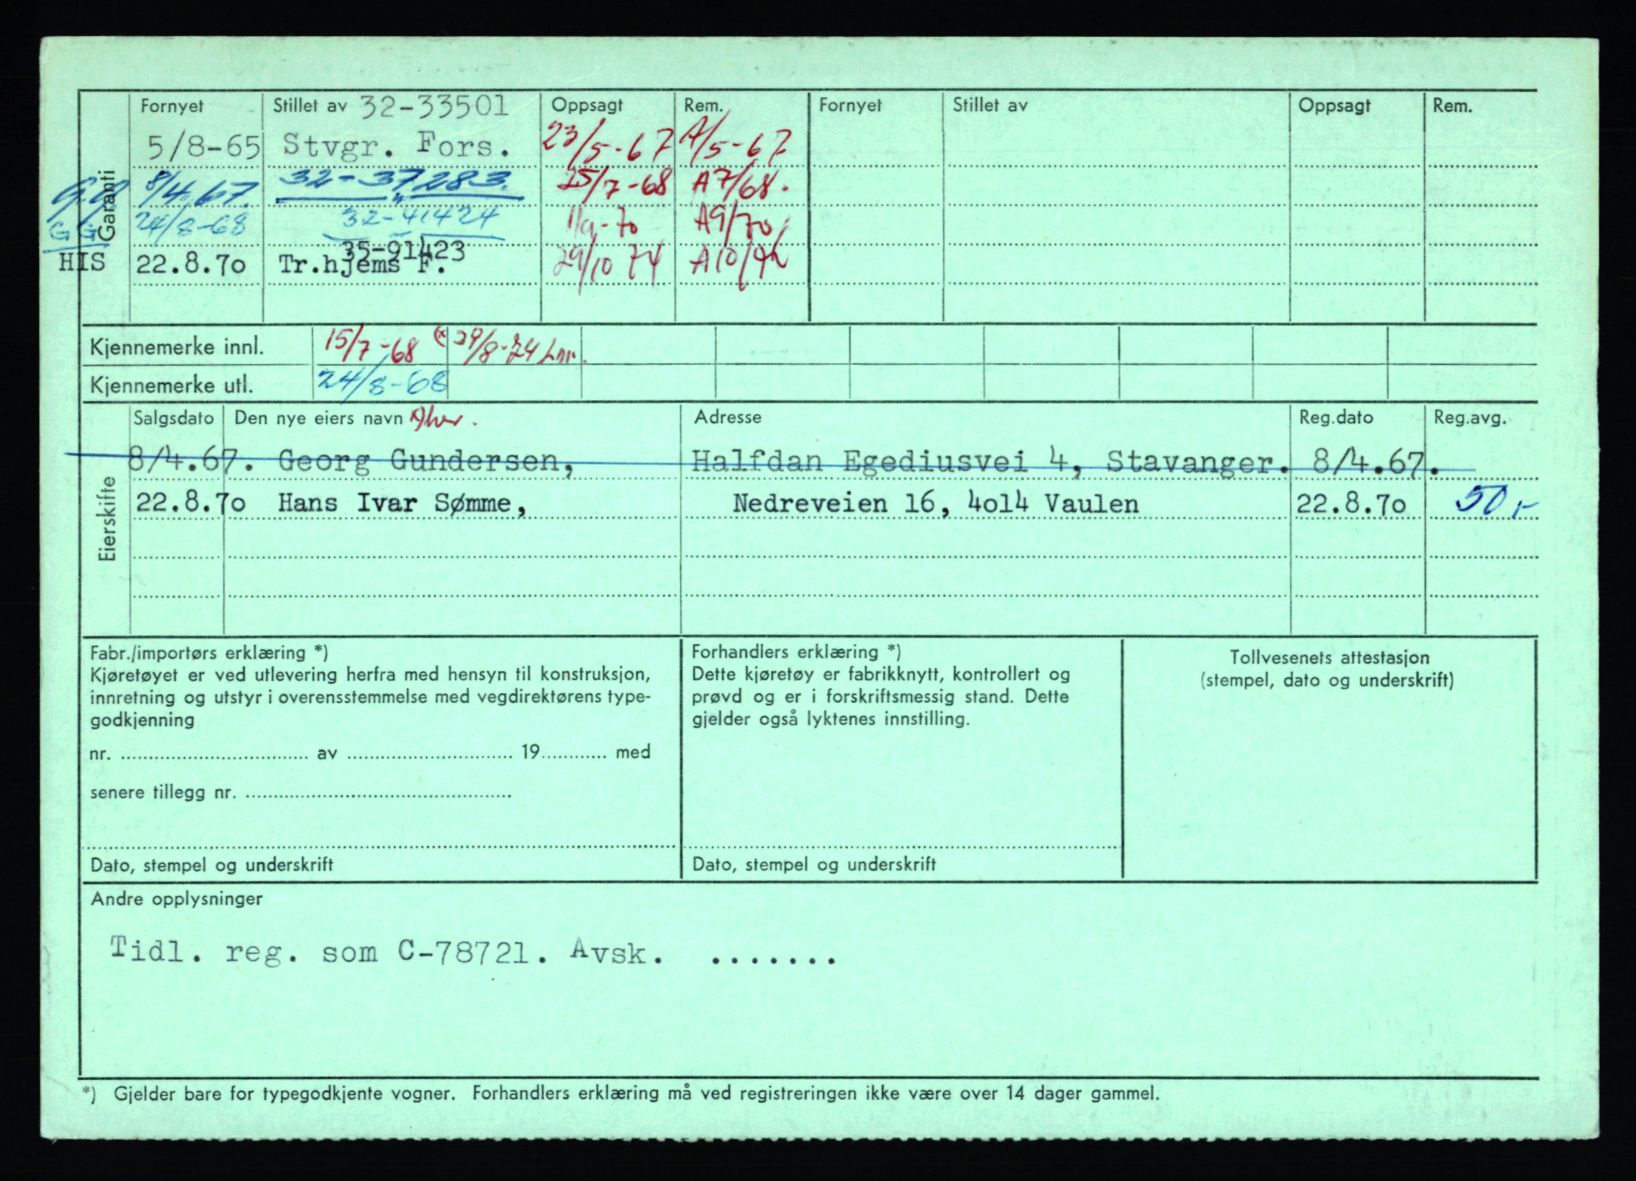 Garanti
Fornyet Stillet av 32-33501 Oppsagt Rem. Fornyet Stillet av Oppsagt Rem.
5/8-65 Stvgr. Fors. 23/5-67 A/5-67
G.G. 8/4.67. 32-37283. 15/7-68 A7/68.
GG 24/8-68 32-41424 A9/70
35-91423
HIS 22.8.70 Tr.hjems F. 29/10 74 A10/74
Kjennemerke innl. 15/7-68 29/8-74
Kjennemerke utl. 24/8-68
Eierskifte
Salgsdato Den nye eiers navn Adresse Reg.dato Reg.avg.
8/4.67. Georg Gundersen, Halfdan Egediusvei 4, Stavanger. 8/4.67.
22.8.70 Hans Ivar Sømme, Nedreveien 16, 4014 Vaulen 22.8.70 50,-
Fabr./importørs erklæring *)
Kjøretøyet er ved utlevering herfra med hensyn til konstruksjon,
innretning og utstyr i overensstemmelse med vegdirektørens type-
godkjenning
nr. ................................. av .............................. 19............ med
senere tillegg nr. ................................................
Dato, stempel og underskrift
Forhandlers erklæring *)
Dette kjøretøy er fabrikknytt, kontrollert og
prøvd og er i forskriftsmessig stand. Dette
gjelder også lyktenes innstilling.
Dato, stempel og underskrift
Tollvesenets attestasjon
(stempel, dato og underskrift)
Andre opplysninger
Tidl. reg. som C-78721. Avsk. .......
*) Gjelder bare for typegodkjente vogner. Forhandlers erklæring må ved registreringen ikke være over 14 dager gammel.